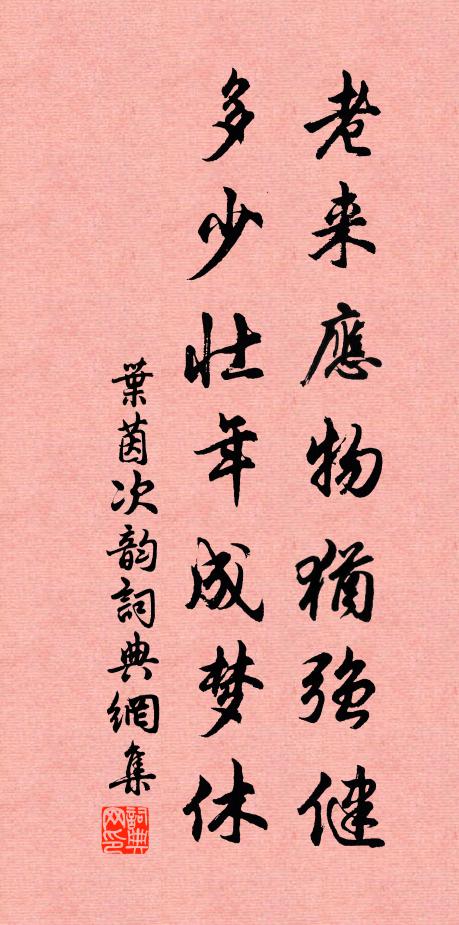 老来應物猶强健
多少壮年成梦休
葉茵次韵詞典網集
詞典网印